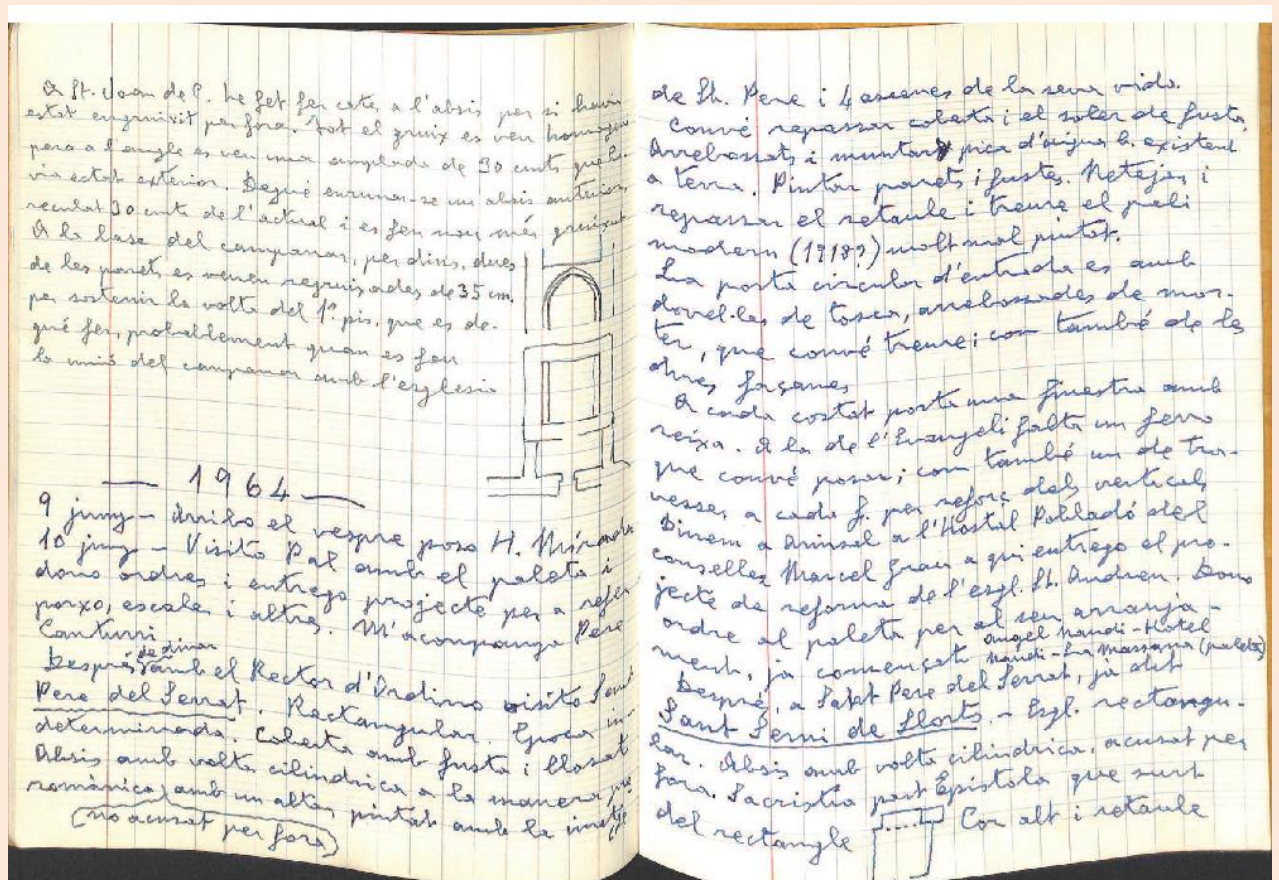 A St. Joan de C. he fet fer cates a l'absis per si havia
estat engruixit per fora. Tot el gruix es veu homogeni
pero a l'angle es veu una amplada de 30 cmts que ha-
via estat exterior. Degué enrunar-se un absis anterior,
reculat 30 cmts de l'actual i es feu nou més gruixut
A la base del campanar, per dins, dues
de les parets es veuen regruixades de 35 cm.
per sostenir la volta del 1er pis, que es de-
gué fer, probablement quan es feu
la unió del campanar amb l'esglesia
— 1964 —
9 juny — Arribo el vespre poso H. Mirador
10 juny — Visito Pal amb el paleta i
dono ordres i entrego projecte per a refer
porxo, escales i altres. M'acompanya Pere
Canturri
Després de dinar amb el Rector d'Ordino visito Sant
Pere del Serrat. Rectangular. Epoca in-
determinada. Coberta amb fusta i llosat
Absis amb volta cilindrica a la manera pre
romànica, amb un altar pintat amb la imatge
(no acusat per fora)
de St. Pere i 4 escenes de la seva vida.
Convé repassar coberta i el soler de fusta,
Arrebossats i muntar pica d'aigua b. existent
a terra. Pintar parets i fustes. Netejar i
repassar el retaule i treure el pali
modern (1918?) molt mal pintat.
La porta circular d'entrada es amb
dovel·les de tosca, arrebossades de mor-
ter, que convé treure; com també de les
dues façanes
A cada costat porta una finestra amb
reixa. A la de l'Evangeli falta un ferro
que convé posar; com també un de tra-
vesser a cada f. per reforç dels verticals
Dinem a Arinsal a l'Hostal Pobladó del
conseller Marcel Grau a qui entrego el pro-
jecte de reforma de l'esgl. St. Andreu. Dono
ordre al paleta per al seu arranja-
ment, ja començat. Angel Naudi - Hotel
Naudi - La Massana (paleta)
Després, a Sant Pere del Serrat, ja dit
Sant Serni de Llorts. — Esgl. rectangu-
lar. Absis amb volta cilindrica, acusat per
fora. Sacristia part Epistola que surt
del rectangle Cor alt i retaule